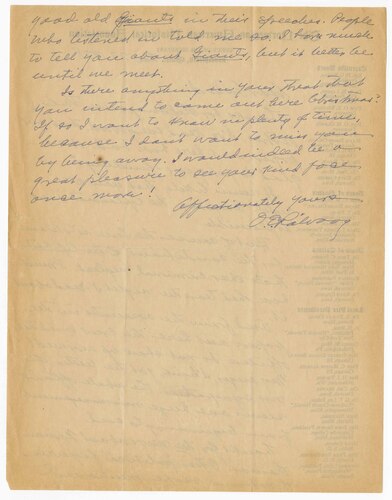 good old Giants in their speeches. People
who listened in told me so. I have much
to tell you about Giants, but it better be
until we meet.
Is there anything in yours that that
you intend to come out here Christmas?
If so I want to know in plenty of time,
because I don't want to miss you
by being away. I would indeed be a
great pleasure to see your kind face
once more!
Affectionately yours
O. E. Rölvaag